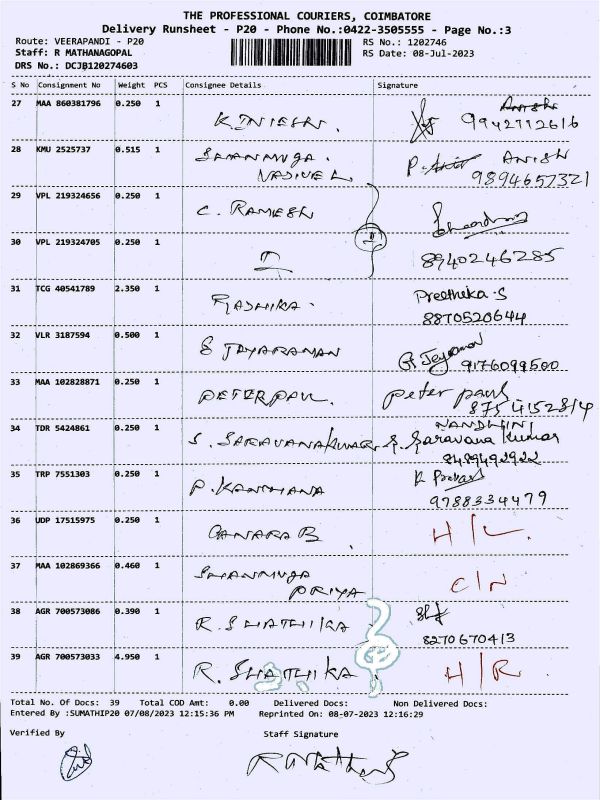 THE PROFESSIONAL COURIERS, COIMBATORE
Delivery Runsheet - P20 - Phone No.:0422-3505555 - Page No.:3
Route: VEERAPANDI - P20 RS No.: 1202746
Staff: R MATHANAGOPAL RS Date: 08-Jul-2023
DRS No.: DCJB120274603
S No Consignment No Weight PCS Consignee Details Signature
27 MAA 860381796 0.250 1
9942712616
28 KMU 2525737 0.515 1 SHANMUGA. P. ANISH
VADIVEL 9894657321
29 VPL 219324656 0.250 1 C. RAMESH
30 VPL 219324705 0.250 1 8940246285
31 TCG 40541789 2.350 1 RADHIKA. Preetheka.S
8870520644
32 VLR 3187594 0.500 1 S JAYARAMAN 9176099500
33 MAA 102828871 0.250 1 PETERPAUL. peter paul
8754152814
34 TDR 5424861 0.250 1 S. SARAVANAKUMAR NANDHINI
S. Saravana Kumar
8489492922
35 TRP 7551303 0.250 1 P. KANTHANA
9788334479
36 UDP 17515975 0.250 1 CANARA B H/L
37 MAA 102869366 0.460 1 SHANMUGA C/N
PRIYA
38 AGR 700573086 0.390 1 R. SHATHIKA
8270670413
39 AGR 700573033 4.950 1 R. SHATHIKA H/R
Total No. Of Docs: 39 Total COD Amt: 0.00 Delivered Docs: Non Delivered Docs:
Entered By :SUMATHIP20 07/08/2023 12:15:36 PM Reprinted On: 08-07-2023 12:16:29
Verified By Staff Signature